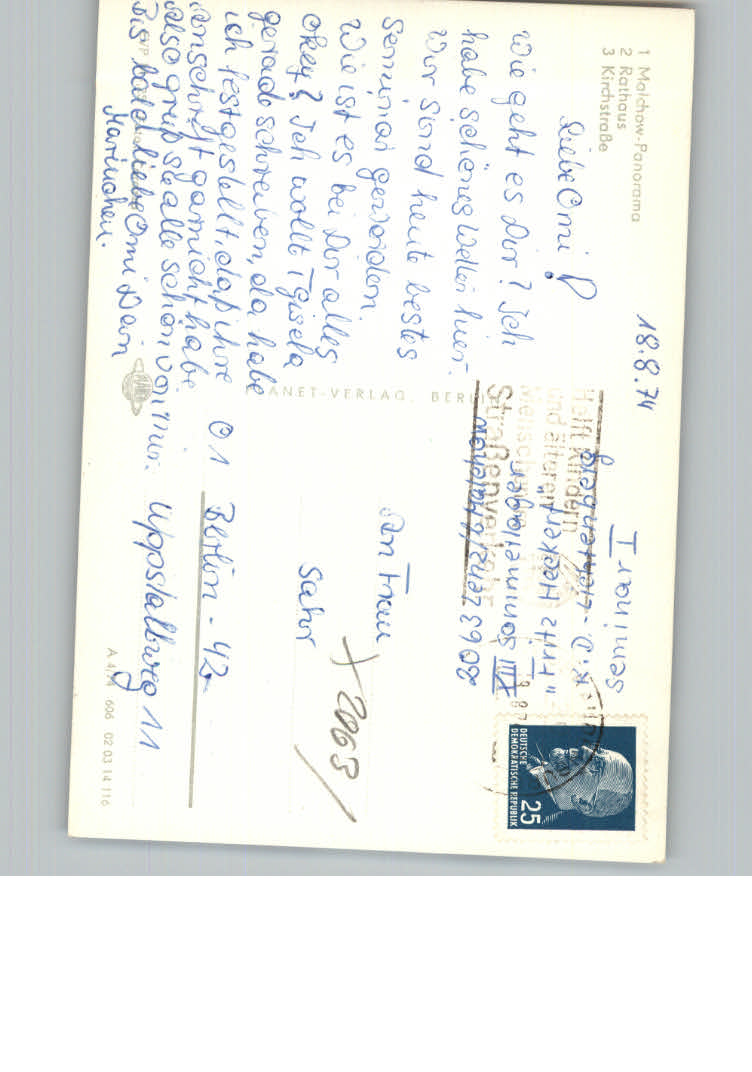 1 Malchow-Panorama
2 Rathaus
3 Kirchstraße
18.8.74
Liebe Omi!
Wie geht es Dir? Ich
habe schönes Wetter hier.
Wir sind heute bestes
Seminar geworden.
Wie ist es bei Dir alles
okey? Ich wollt T. Gisela
gerade schreiben, da habe
ich festgestellt, daß ihre
Anschrift garnicht habe
Also grüß sie alle schön von mir.
Bis bald liebe Omi Dein
Marinchen.
PLANET-VERLAG, BERLIN
Seminar I
"Fritz Heckert"
XIII Sommerlager
2063 Malchow
Helft Kindern
und älteren
Menschen im
Straßenverkehr
DEUTSCHE
DEMOKRATISCHE REPUBLIK
25
An Frau
Sahr
X 2063
Berlin - 42
01
Uppstallweg 11
A 4/74 606 02 03 14 116